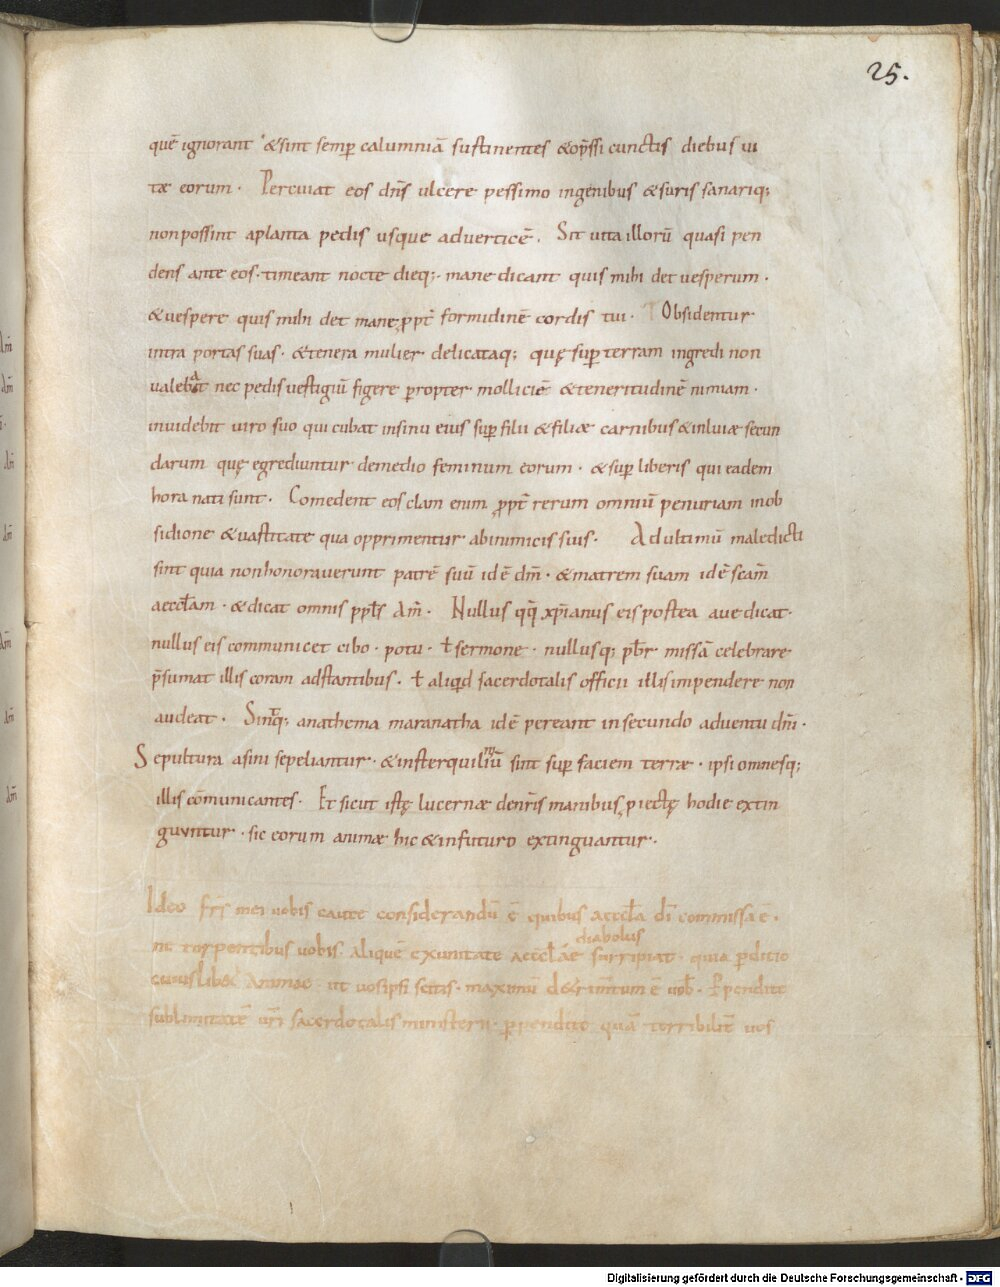 25.
quē ignorant &sint semp calumniā sustinentes &opp̄ssi cunctis diebus ui
tæ eorum · Percutiat eos dn̄s ulcere pessimo ingenibus &suris sanariq;
nonpossint aplanta pedis usque aduerticē. Sit uita illorū quasi pen
dens ante eos · timeant nocte dieq; · mane dicant quis mihi det uesperum ·
&uespere quis mihi det mane, ppt̄ formidinē cordis tui · Obsidentur
intra portas suas · &tenera mulier delicataq; quę sup terram ingredi non
ualebat nec pedis uestigiū figere propter molliciē &teneritudinē nimiam ·
inuidebit uiro suo qui cubat insinu eius sup filii &filiæ carnibus &inluuiæ secun
darum quę egrediuntur demedio feminum eorum · &sup liberis qui eadem
hora nati sunt · Comedent eos clam enim ppt̄ rerum omniū penuriam inob
sidione &uastitate qua opprimentur abinimicis suis · Ad ultimū maledicti
sint quia nonhonorauerunt patrē suū idē dm̄ · &matrem suam idē scam̄
aeccl̄am · &dicat omnis ppl̄s am̄ · Nullus qq̄ xp̄ianus eis postea aue dicat ·
nullus eis communicet cibo · potu · ł sermone · nullusq; pb̄r missā celebrare
p̄sumat illis coram adstantibus · ł aliqd sacerdotalis officii illis impendere non
audeat · Sintq; anathema maranatha idē pereant insecundo aduentu dn̄i ·
Sepultura asini sepeliantur · &insterquiliniū sint sup faciem terræ · ipsi omnesq;
illis cōmunicantes · Et sicut istę lucernæ den̄ris manibus piectę hodie extin
guuntur · sic eorum animæ hic &infuturo extinguantur ·
Ideo fr̄s mei uobis caute considerandū ē quibus aeccl̄a dī commissa ē ·
diabolus
ne torpentibus uobis · aliquē exunitate aeccl̄æ surripiat · quia pditio
cuiuslib& animae · ut uosipsi scitis · maximū d&rimtum ē uob̄ · Ppendite
sublimitatē ur̄i sacerdotalis ministerii · ppendite quā terribilit̄ uos
Digitalisierung gefördert durch die Deutsche Forschungsgemeinschaft - DFG